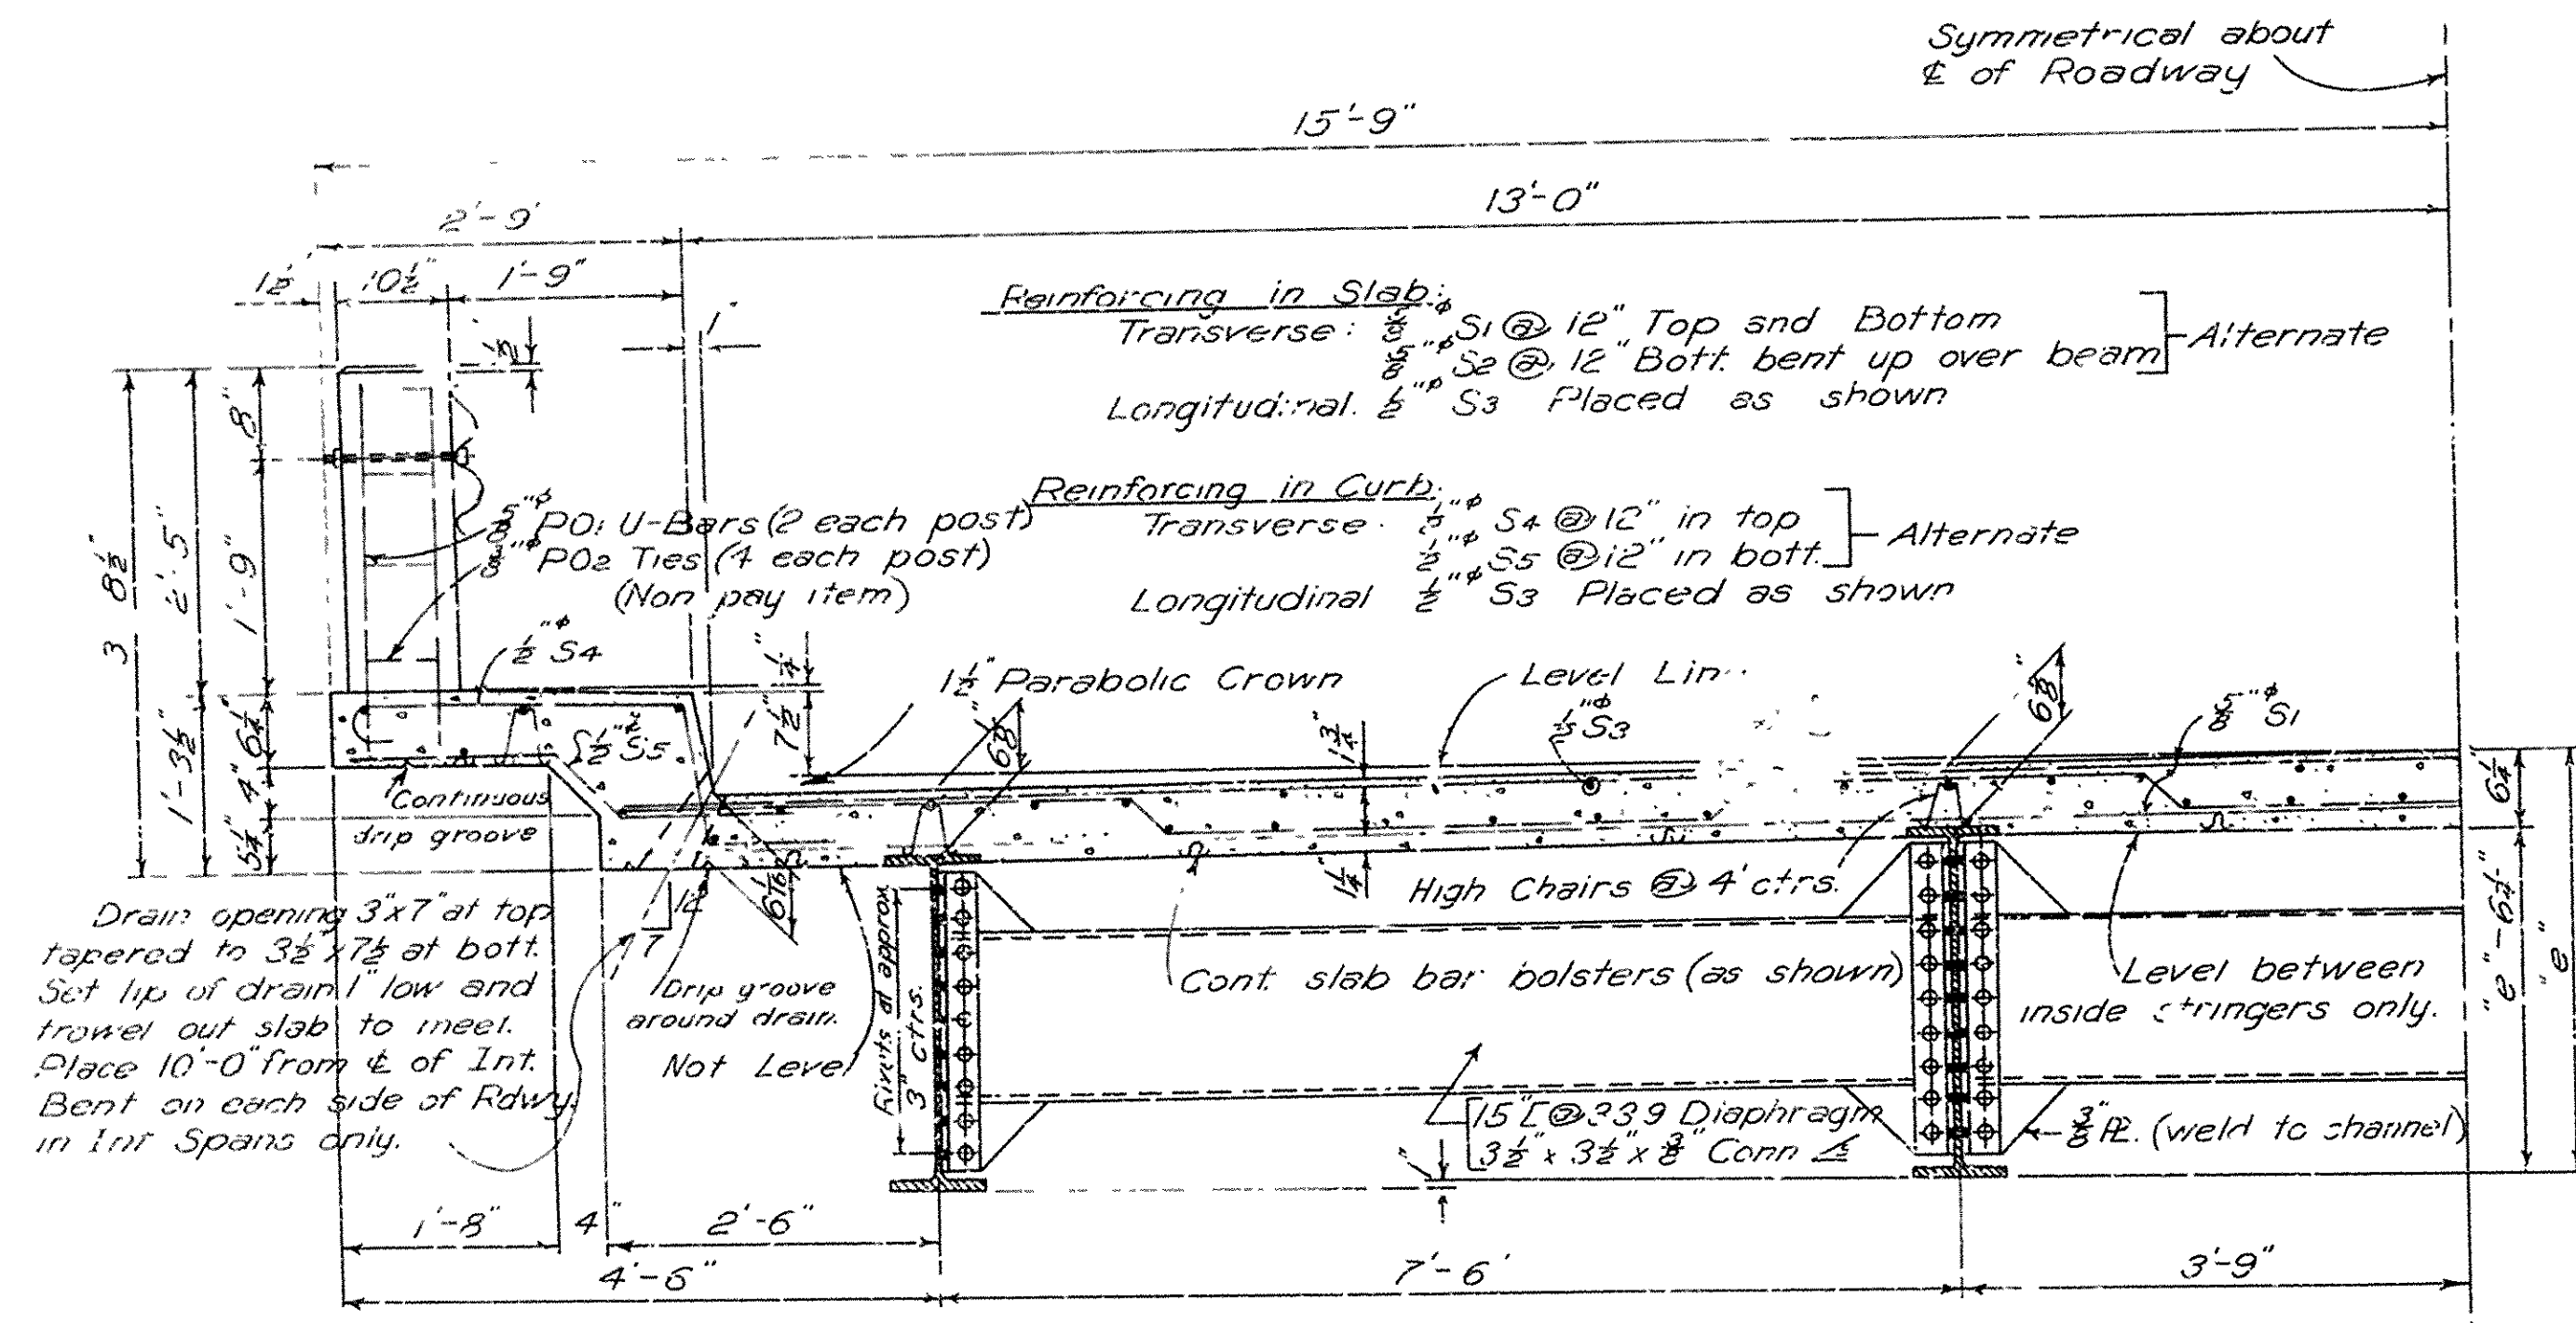 Symmetrical about
℄ of Roadway
15'-9"
13'-0"
2'-9'
1½'
10½"
1'-9"
½
Reinforcing in Slab:
Transverse: ⅝"ᶲ S1 @ 12" Top and Bottom
⅝"ᶲ S2 @ 12" Bott. bent up over beam
Alternate
Longitudinal. ½"ᶲ S3 Placed as shown
Reinforcing in Curb:
Transverse. ½"ᶲ S4 @ 12" in top
½"ᶲ S5 @ 12" in bott.
Alternate
Longitudinal ½"ᶲ S3 Placed as shown
⅝"ᶲ PO1 U-Bars (2 each post)
⅜"ᶲ PO2 Ties (4 each post)
(Non pay item)
8"
3 8½"
2'-5"
1'-9"
½"ᶲ S4
¼"
7½"
1½" Parabolic Crown
Level Lin
½"ᶲ S3
⅝"ᶲ S1
1¾"
1'-3½"
6¼"
4"
5¼"
½"ᶲ S5
6¼"
Continuous
drip groove
1¼"
High Chairs @ 4' ctrs.
12
7
Drain opening 3"x7" at top
tapered to 3½"x7½ at bott.
Set lip of drain 1" low and
trowel out slab to meet.
Place 10'-0" from ℄ of Int.
Bent on each side of Rdwy.
in Int Spans only.
Drip groove
around drain.
Not Level
Rivets at approx
3" ctrs.
Cont. slab bar bolsters (as shown)
Level between
inside stringers only.
"e"-6¼"
"e"
15"[@33.9 Diaphragm
3½" x 3½" x ⅜" Conn ∠s
⅜" ℄. (weld to channel)
1'-8"
4"
2'-6"
4'-6"
7'-6'
3'-9"